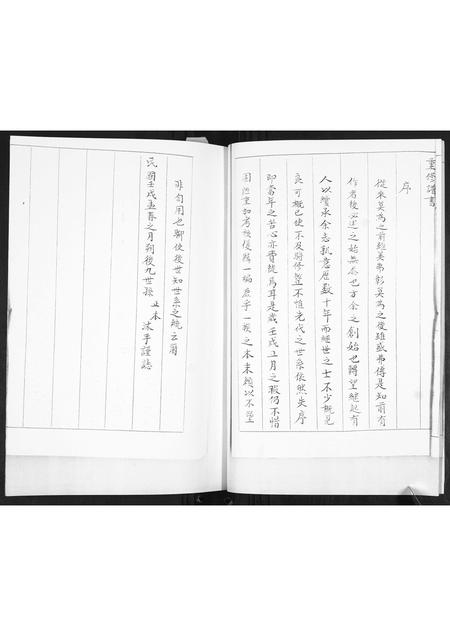 重修譜書
序
從來莫為之前雖美弗彰莫為之後雖盛弗傳是知前有
作者後必述之始無忝也方余之創始也歸望繼起有
人以繼承余志孰意歷數十年而經世之士不少概見
良可概已使不及時修整不惟先代之世系依然失序
即當年之苦心亦費徒焉耳是歲壬戌五月之暇仍不惜
固陋重加考核優緝一編庶乎一族之本末賴以不墜
非自用也聊使後世知世系之統云爾
民國壬戌孟春之月朔後九世孫 立本 沐手謹誌